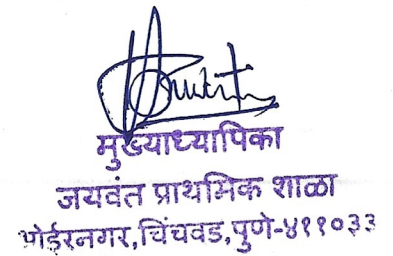 मुख्याध्यापिका
जयवंत प्राथमिक शाळा
भोईरनगर,चिंचवड,पुणे-४११०३३